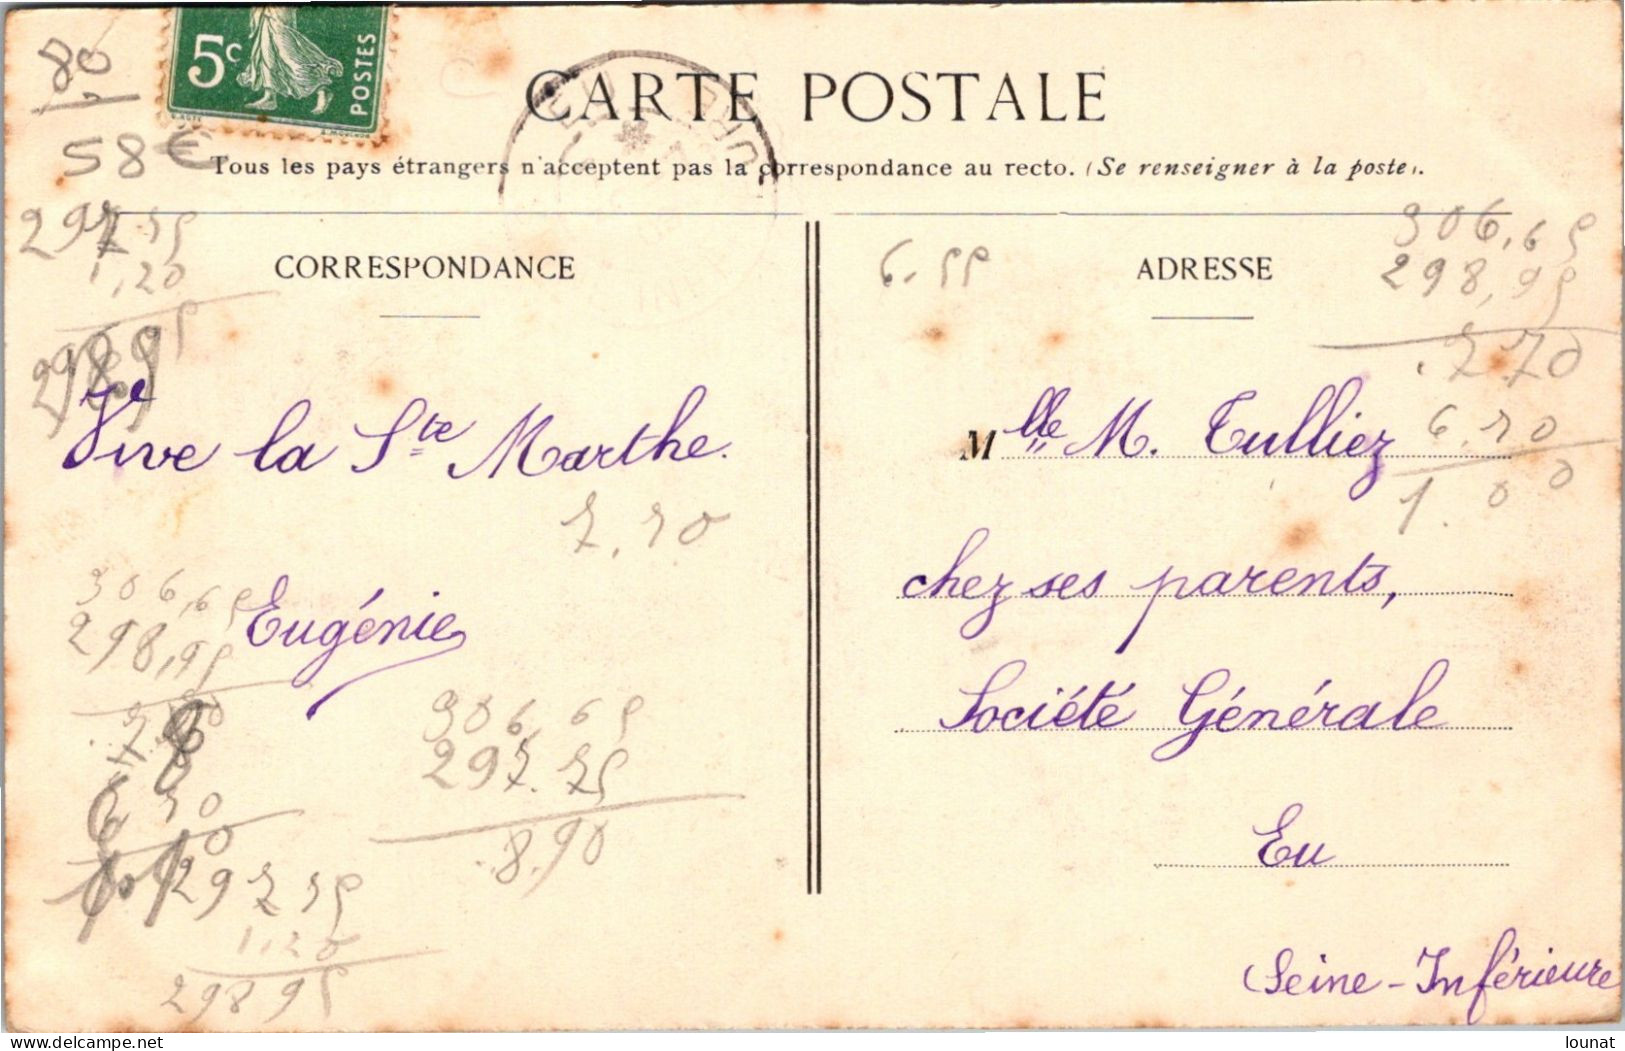 80
5c
POSTES
58 €
CARTE POSTALE
Tous les pays étrangers n'acceptent pas la correspondance au recto. (Se renseigner à la poste).
297 75
1,20
298 95
CORRESPONDANCE
Vive la Ste Marthe.
7,70
Eugénie
306,65
298,95
306,65
297.75
8,90
297 75
1,20
298 95
6.55
ADRESSE
306,65
298,95
7 70
6.70
1.00
Mlle M. Tulliez
chez ses parents,
Société Générale
Eu
Seine-Inférieure
delcampe.net
lounat